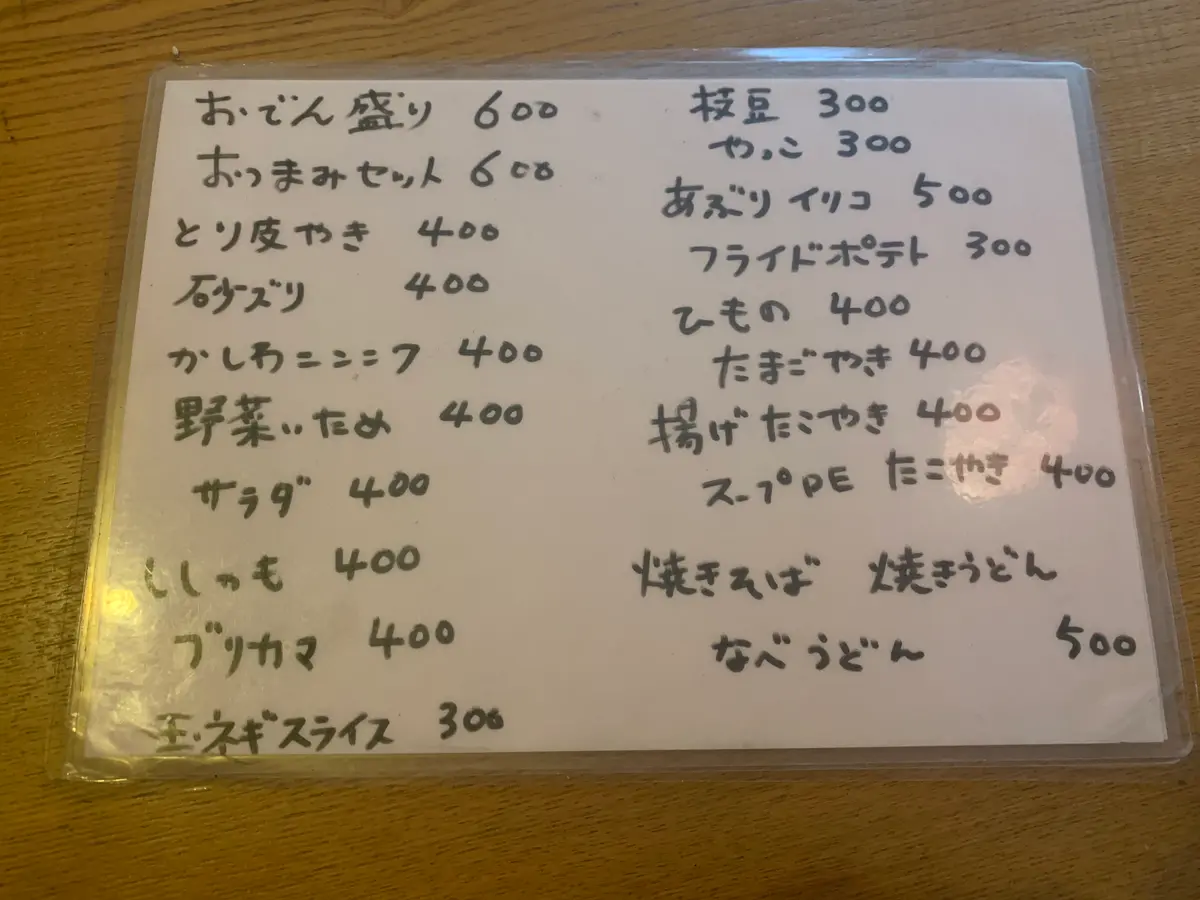 おでん盛り 600
おつまみセット 600
とり皮やき 400
砂ズリ 400
かしわニンニク 400
野菜いため 400
サラダ 400
ししゃも 400
ブリカマ 400
玉ネギスライス 300
枝豆 300
やっこ 300
あぶりイリコ 500
フライドポテト 300
ひもの 400
たまごやき 400
揚げたこやき 400
スープDEたこやき 400
焼きそば 焼きうどん
なべうどん 500